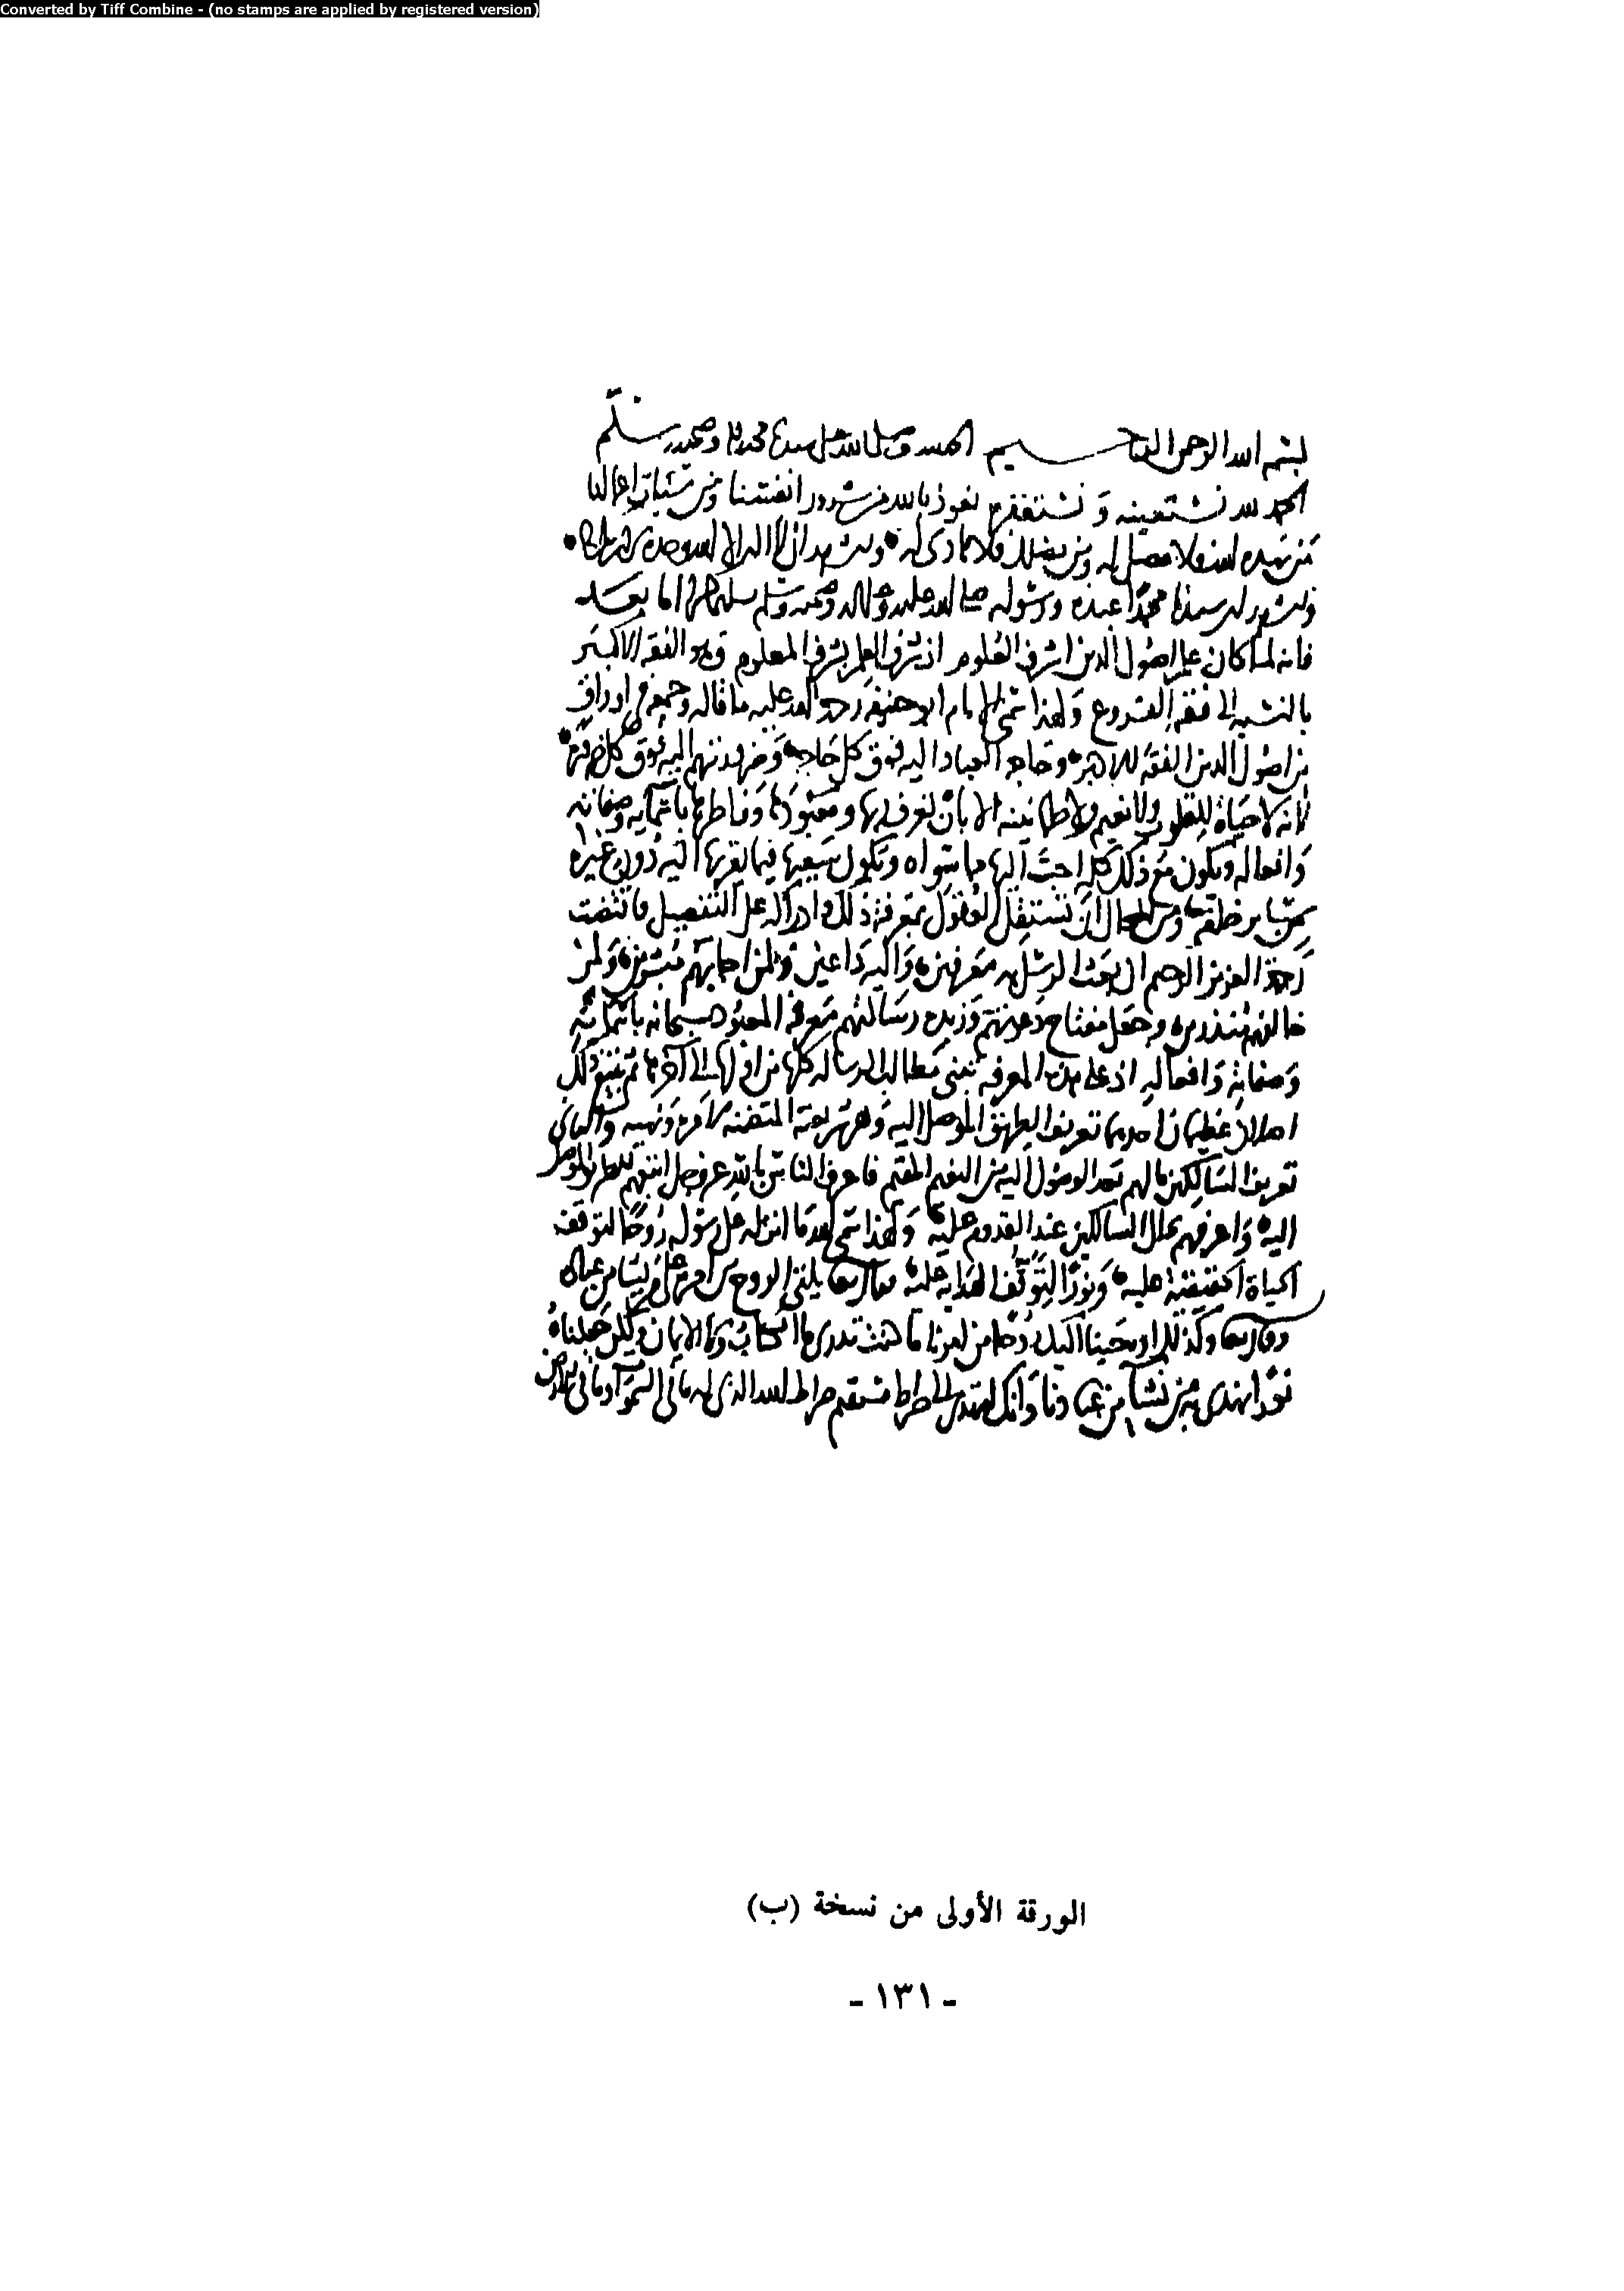 Converted by Tiff Combine - (no stamps are applied by registered version)
بسم الله الرحمن الرحيم وصل الله على محمد وصحبه وسلم
الحمد لله نستعينه ونستغفره نعوذ بالله من شرور انفسنا ومن سيئات اعمالنا
من يهده الله فلا مضل له ومن يضلل فلا هادى له ونشهد ان لا اله الا الله وحده لا شريك له
ونشهد ان سيدنا محمدا عبده ورسوله صلى الله عليه وعلى اله وصحبه وسلم اما بعد
فانه لما كان علم اصول الدين اشرف العلوم اذ شرف العلم بشرف المعلوم وهو الفقه الاكبر
بالنسبه الى فقه الفروع ولهذا سمى الامام ابو حنيفه رحمه الله عليه ما قاله وجمعه فى اوراق
من اصول الدين الفقه الاكبر وحاجه العباد اليه فوق كل حاجه وضرورتهم اليه فوق كل ضرورة
لانه لا حياة للقلوب ولا نعيم ولا طمانينه الا بان تعرف ربها ومعبودها وفاطرها باسمايه وصفاته
وافعاله ويكون مع ذلك كله احب اليها مما سواه ويكون سعيها فيما يقربها اليه دون غيره
من المحال ان تستقل العقول بمعرفة ذلك وادراكه على التفصيل فاقتضت
رحمة العزيز الرحيم ان بعث الرسل به معرفين واليه داعين ولمن اجابهم مبشرين ولمن
خالفهم منذرين وجعل مفتاح دعوتهم وزبدة رسالتهم معرفة المعبود سبحانه باسمائه
وصفاته وافعاله اذ على هذه المعرفه تبنى مطالب الرساله كلها من اولها الى آخرها ثم يتبع ذلك
اصلان عظيمان احدهما تعريف الطريق الموصل اليه وهو شريعته المتضمنه لامره ونهيه والثانى
تعريف السالكين ما لهم بعد الوصول اليه من النعيم المقيم فاعرف الناس بالله عز وجل اتبعهم للطريق الموصل
اليه واعرفهم بحال السالكين عند القدوم عليه ولهذا سمى الله ما انزله على رسوله روحا لتوقف
الحياة الحقيقية عليه ونورا لتوقف الهداية عليه يلقى الروح من امره على من يشا من عباده
وكذلك اوحينا اليك روحا من امرنا ما كنت تدرى ما الكتاب ولا الايمان ولكن جعلناه
نورا نهدى به من نشا من عبادنا وانك لتهدى الى صراط مستقيم صراط الله الذى له ما فى السموات وما فى الارض
الورقة الأولى من نسخة (ب)
- ١٣١ -